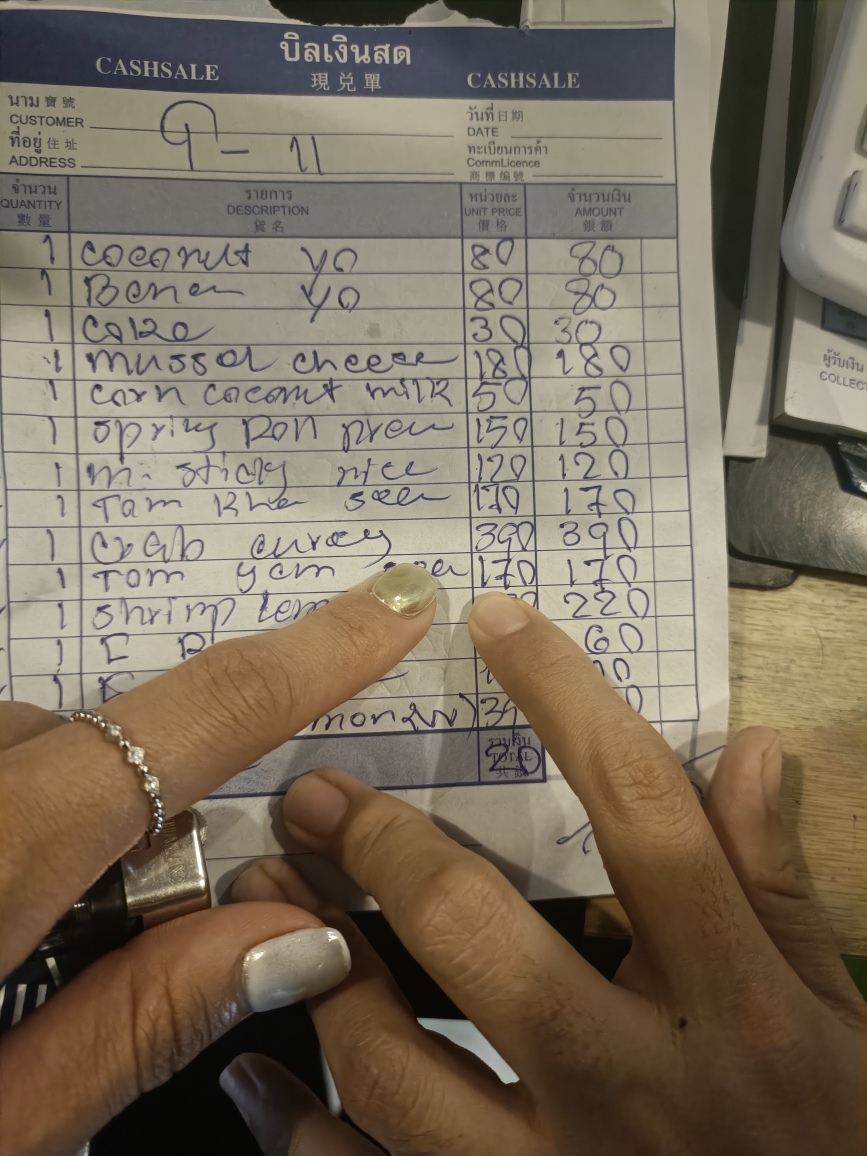 บิลเงินสด
CASHSALE 現兌單 CASHSALE
นาม 寶號
CUSTOMER
ที่อยู่ 住址
ADDRESS
ๆ - 11
วันที่ 日期
DATE
ทะเบียนการค้า
CommLicence
商標編號
จำนวน QUANTITY 數量 รายการ DESCRIPTION 貨名 หน่วยละ UNIT PRICE 價格 จำนวนเงิน AMOUNT 銀額
1 coconut yo 80 80
1 Banan yo 80 80
1 coke 30 30
1 mussol cheese 180 180
1 corn coconut milk 50 50
1 spring Roll prew 150 150
1 m. sticky rice 120 120
1 Tam kha sea 170 170
1 crab currey 390 390
1 Tom yam sea 170 170
1 shrimp 220
1 F 60
1
39
รวมเงิน
TOTAL
20
ผู้รับเงิน
COLLECT